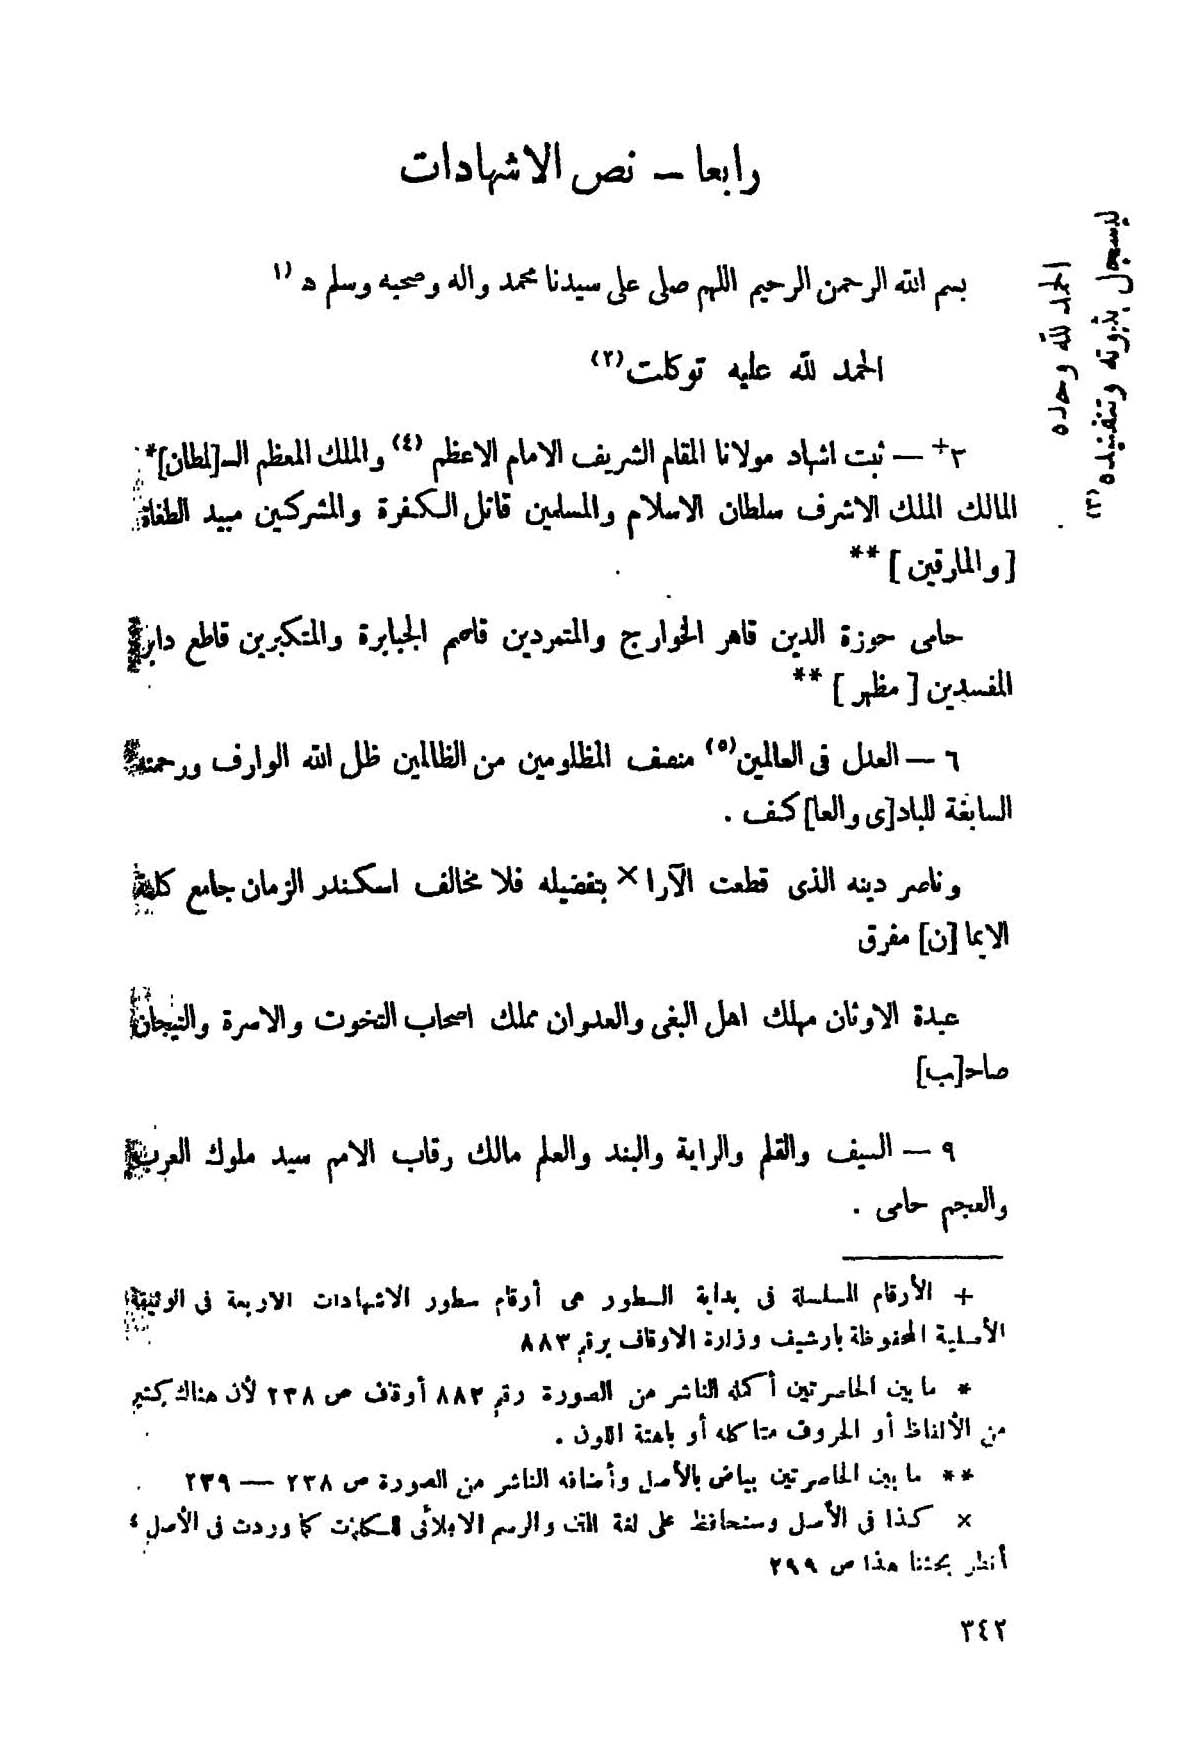 رابعا — نص الاشهادات
الحمد لله وحده
ليسجل بثبوته وتنفيذه (٣)
بسم الله الرحمن الرحيم اللهم صلى على سيدنا محمد واله وصحبه وسلم ه (١)
الحمد لله عليه توكلت (٢)
٣+ — ثبت اشهاد مولانا المقام الشريف الامام الاعظم (٤) والملك المعظم الـ[سلطان]*
المالك الملك الاشرف سلطان الاسلام والمسلمين قاتل الكفرة والمشركين مبيد الطغاة
[ والمارقين ] **
حامى حوزة الدين قاهر الخوارج والمتمردين قاصم الجبابرة والمتكبرين قاطع دابر
المفسدين [ مظهر ] **
٦ — العدل فى العالمين (٥) منصف المظلومين من الظالمين ظل الله الوارف ورحمته
السابغة للباد[ى والعا]كف .
وناصر دينه الذى قطعت الآرا × بتفضيله فلا مخالف اسكندر الزمان جامع كلمة
الايما [ن] مفرق
عبدة الاوثان مهلك اهل البغى والعدوان مملك اصحاب التخوت والاسرة والتيجان
صاحـ[ب]
٩ — السيف والقلم والراية والبند والعلم مالك رقاب الامم سيد ملوك العرب
والعجم حامى .
+ الأرقام المسلسلة فى بداية السطور هى أرقام سطور الاشهادات الاربعة فى الوثيقة
الأصلية المحفوظة بارشيف وزارة الاوقاف برقم ٨٨٣
* ما بين الحاصرتين أكمله الناشر من الصورة رقم ٨٨٢ أوقاف ص ٢٣٨ لأن هناك كثير
من الألفاظ أو الحروف متاكله أو باهتة اللون .
** ما بين الحاصرتين بياض بالأصل وأضافه الناشر من الصورة ص ٢٣٨ — ٢٣٩
× كذا فى الأصل وسنحافظ على لغة المتن والرسم الاملائى للكلمات كما وردت فى الأصل ،
أنظر بحثنا هذا ص ٢٩٩
٣٤٢